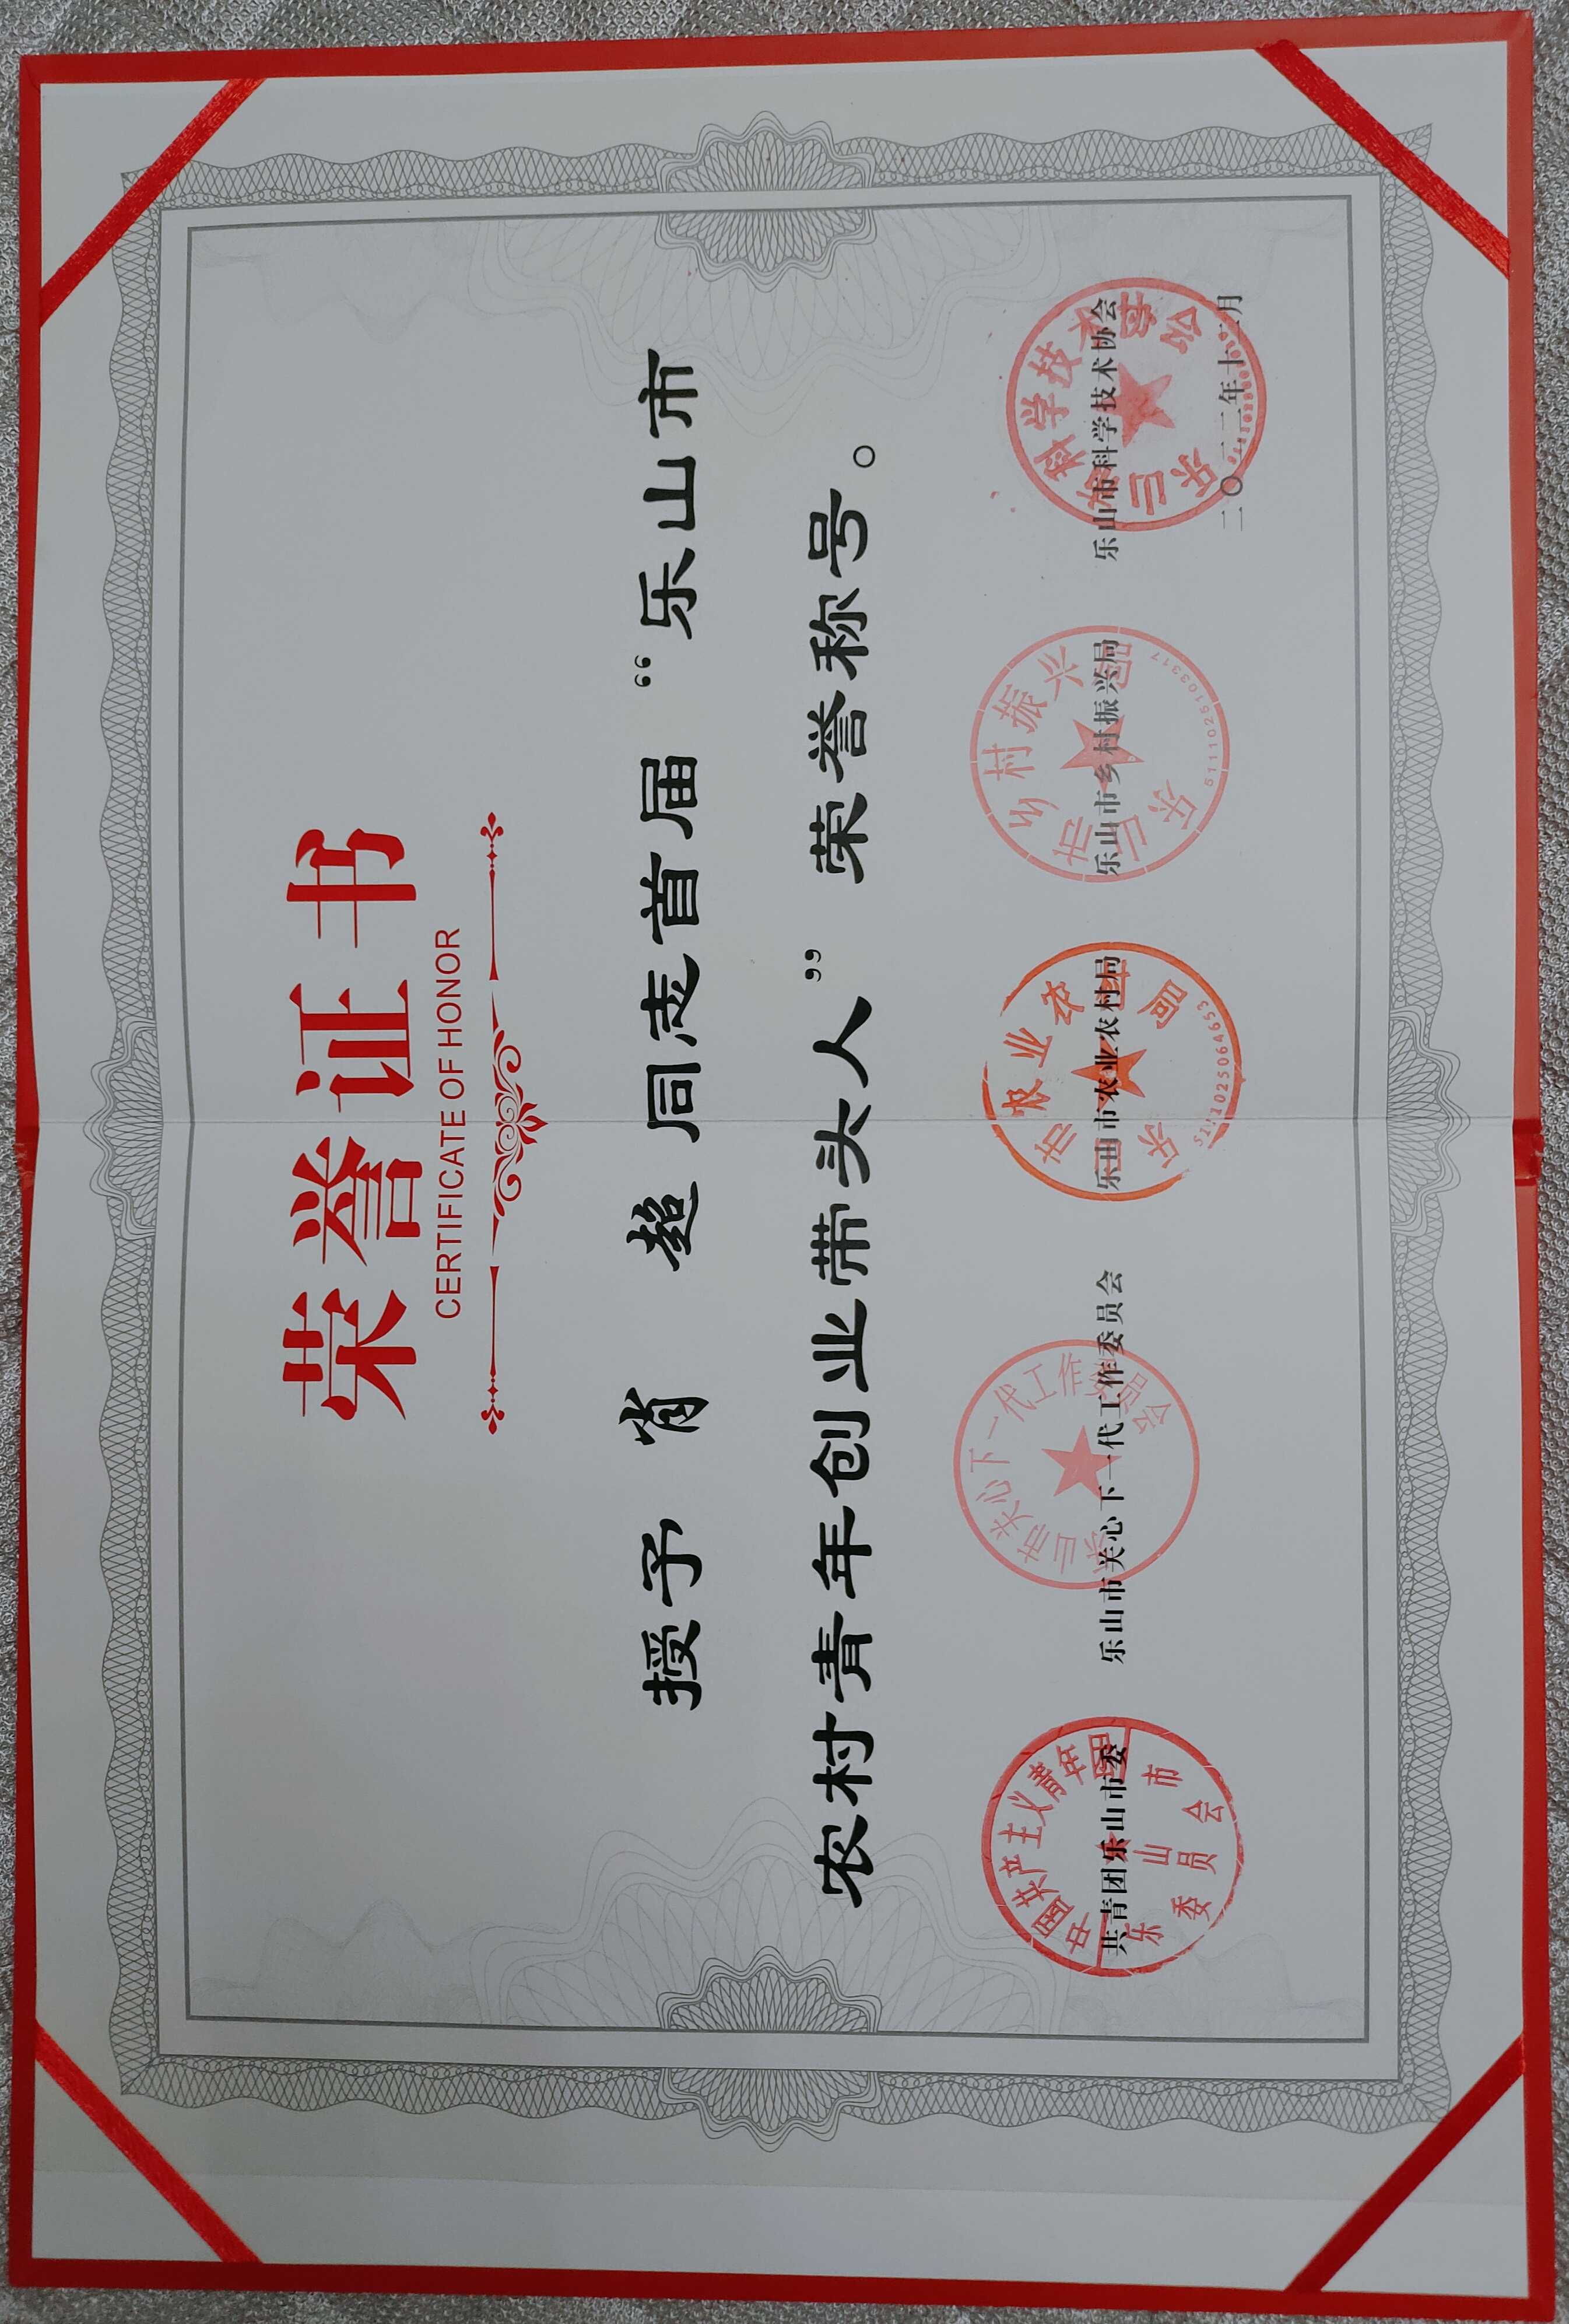 荣誉证书
CERTIFICATE OF HONOR
授予 肖 超 同志首届“乐山市
农村青年创业带头人”荣誉称号。
共青团乐山市委 乐山市关心下一代工作委员会 乐山市农业农村局 乐山市乡村振兴局 乐山市科学技术协会
二〇二二年十二月
中国共产主义青年团
乐山市
委员会
乐山市关心下一代工作委员会
乐山市农业农村局
5111025064653
乐山市乡村振兴局
5111025103317
乐山市科学技术协会